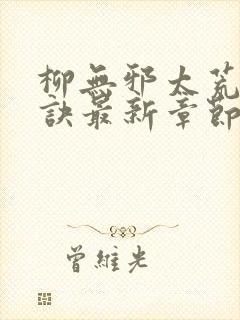 柳無邪太荒
訣最新章節
曾維光